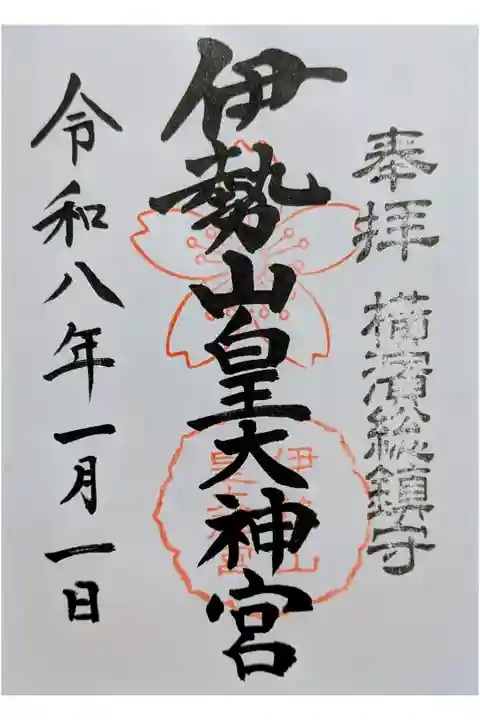 奉拝 横濱総鎮守
伊勢山皇大神宮
令和八年一月一日
伊勢山
皇大神宮